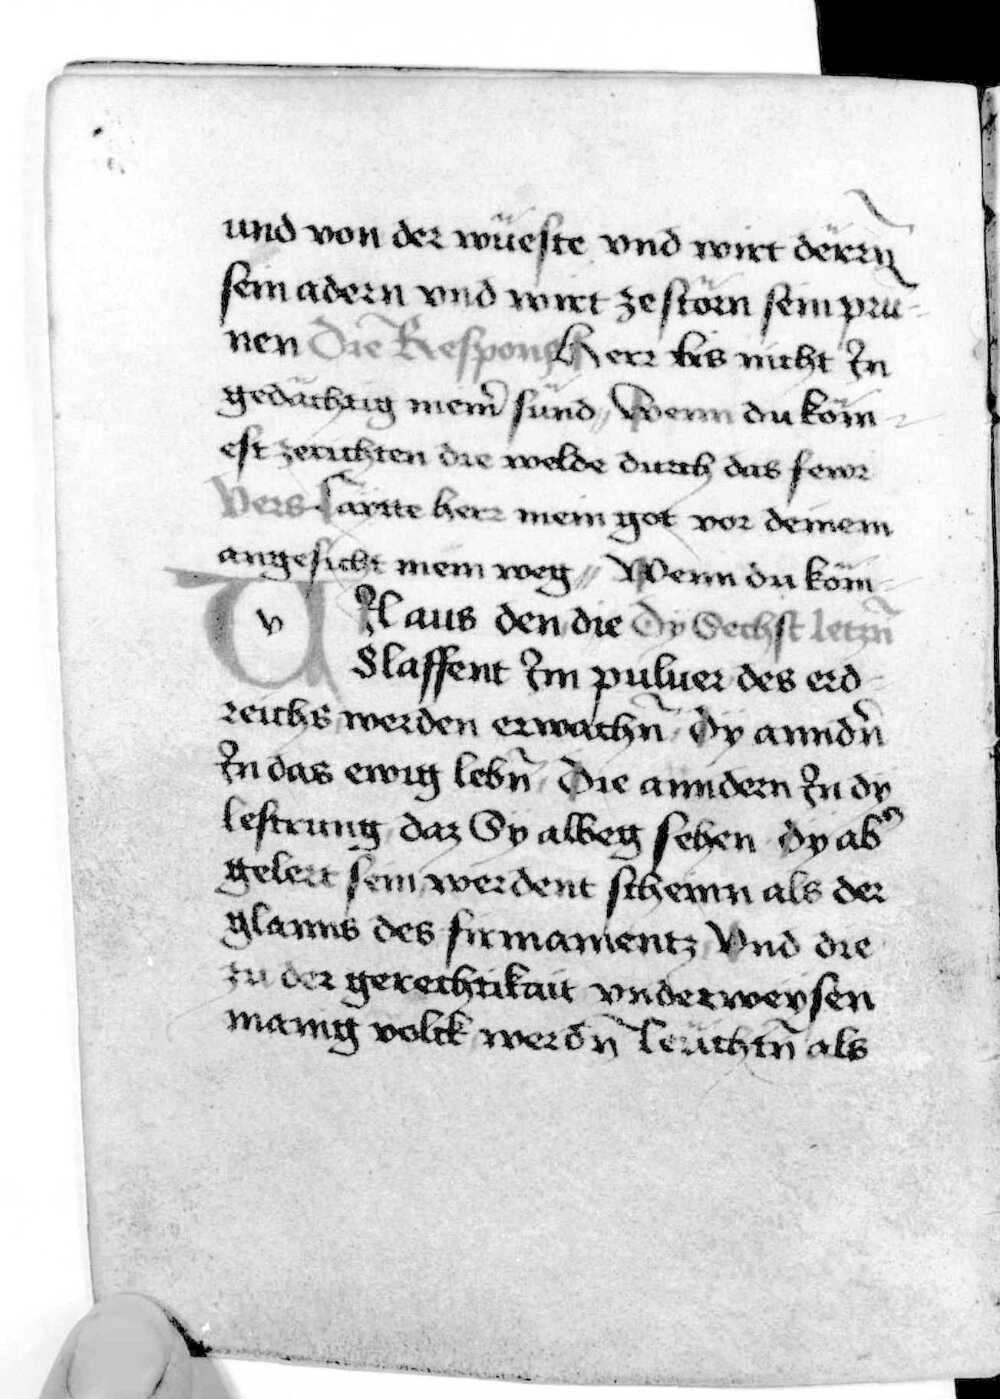 und von der wüeste vnd wirt dërrn̄
sein adern vnd wirt ze störn sein prū-
nen Die Respons Herr bis nicht In
gedächtig mein̄ sünd // Wenn du köm-
est zerichten die welde durch das fewr
Vers Laytte herr mein got vor deinem
angesicht mein weg // Wenn du köm-
v Il aus den die Dy Sechst letzn̄
Slaffent Im puluer des erd-
reichs werden erwachn̄ Dy anndn̄
In das ewig lebn̄ Die anndern In dy
lestrung daz Sy albeg sehen dy ab̾
gelert sein werdent scheinn als der
glanns des firmamentz Vnd die
zu der gerechtikait vnderweysen
manig volck werdn̄ leüchtn̄ als